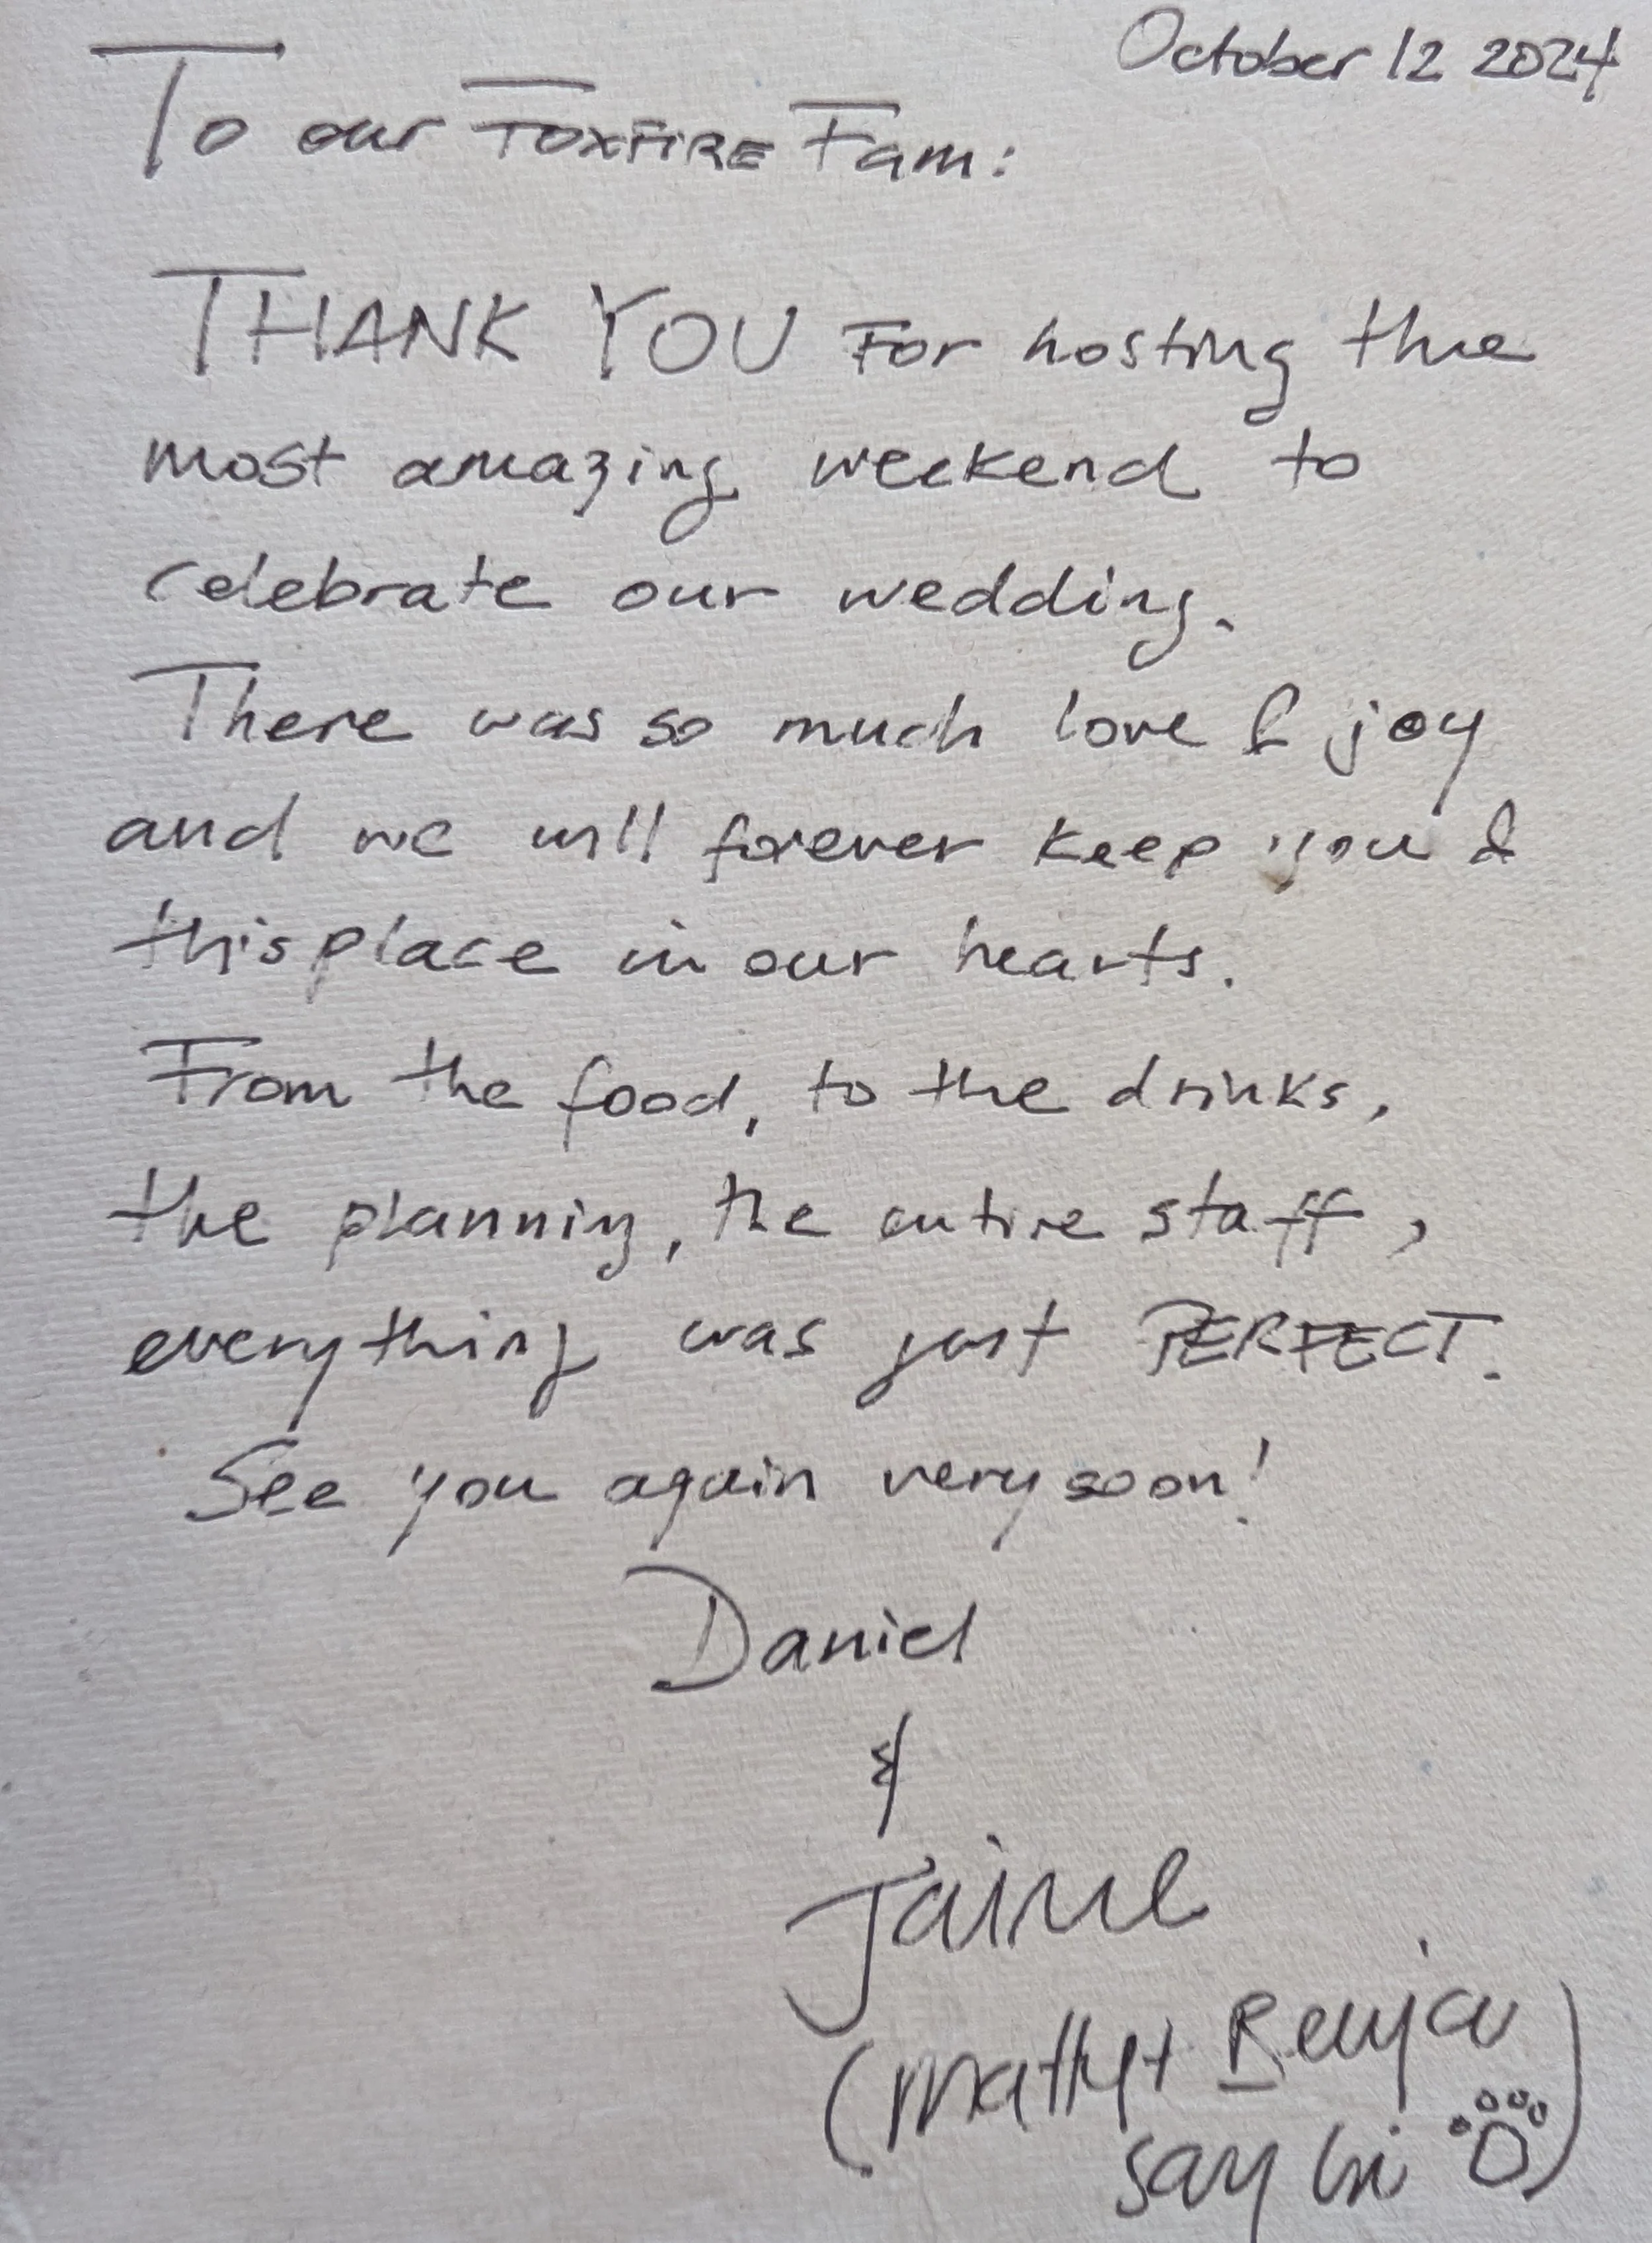 October 12 2024
To our FOXFIRE Fam:
THANK YOU For hosting the
most amazing weekend to
celebrate our wedding.
There was so much love & joy
and we will forever keep you &
this place in our hearts.
From the food, to the drinks,
the planning, the entire staff,
everything was just PERFECT.
See you again very soon!
Daniel
&
Jaime
(Matty + Benja
say hi)